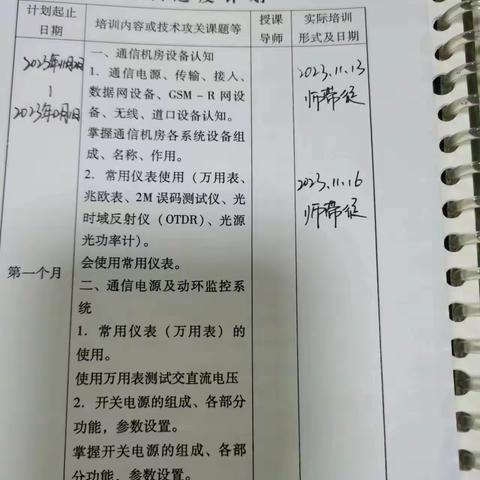 进度计划
计划起止
日期
培训内容或技术攻关课题等
授课
导师
实际培训
形式及日期
一、通信机房设备认知
1. 通信电源、传输、接入、
数据网设备、GSM-R 网设
备、无线、道口设备认知。
掌握通信机房各系统设备组
成、名称、作用。
2. 常用仪表使用（万用表、
兆欧表、2M 误码测试仪、光
时域反射仪（OTDR）、光源
光功率计）。
会使用常用仪表。
二、通信电源及动环监控系
统
1. 常用仪表（万用表）的
使用。
使用万用表测试交直流电压
2. 开关电源的组成、各部分
功能，参数设置。
掌握开关电源的组成、各部
分功能、参数设置。
第一个月
2023.11.13
师带徒
2023.11.16
师带徒